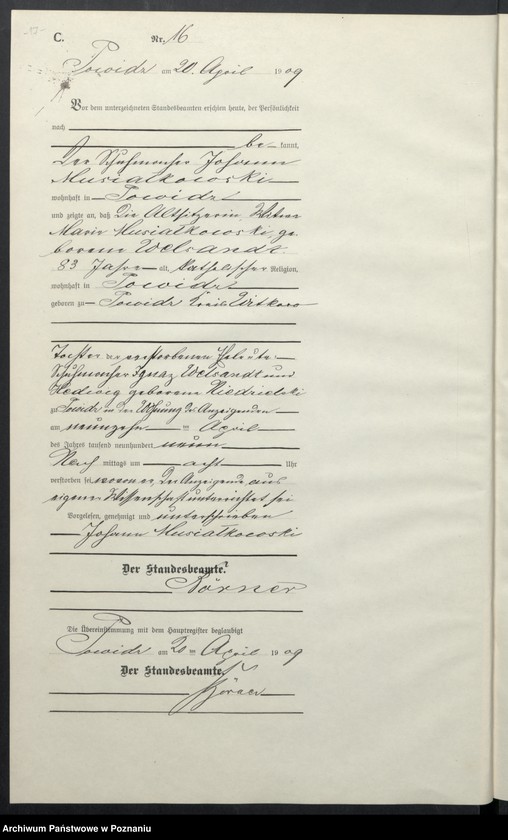 C.
Nr. 16
Powidz am 20. April 1909
Vor dem unterzeichneten Standesbeamten erschien heute, der Persönlichkeit
nach
be kannt,
Der Schuhmacher Johann
Musiałkowski
wohnhaft in Powidz
und zeigte an, daß Die Altsitzerin, Witwe
Marie Musiałkowski, ge-
borene Welsandt
83 Jahre alt, katholischer Religion,
wohnhaft in Powidz
geboren zu Powidz Kreis Witkowo
Tochter der verstorbenen Eheleute
Schuhmacher Ignaz Welsandt und
Hedwig geborene
zu Powidz in der Wohnung des Anzeigenden
am neunzehn ten April
des Jahres tausend neunhundert neun
Nach mittags um acht Uhr
verstorben sei, wovon er, der Anzeigende, aus
eigener Wissenschaft unterrichtet sei
Vorgelesen, genehmigt und unterschrieben
Johann Musiałkowski
Der Standesbeamte.
Börner
Die Übereinstimmung mit dem Hauptregister beglaubigt
Powidz am 20 ten April 1909
Der Standesbeamte.
Börner
Archiwum Państwowe w Poznaniu